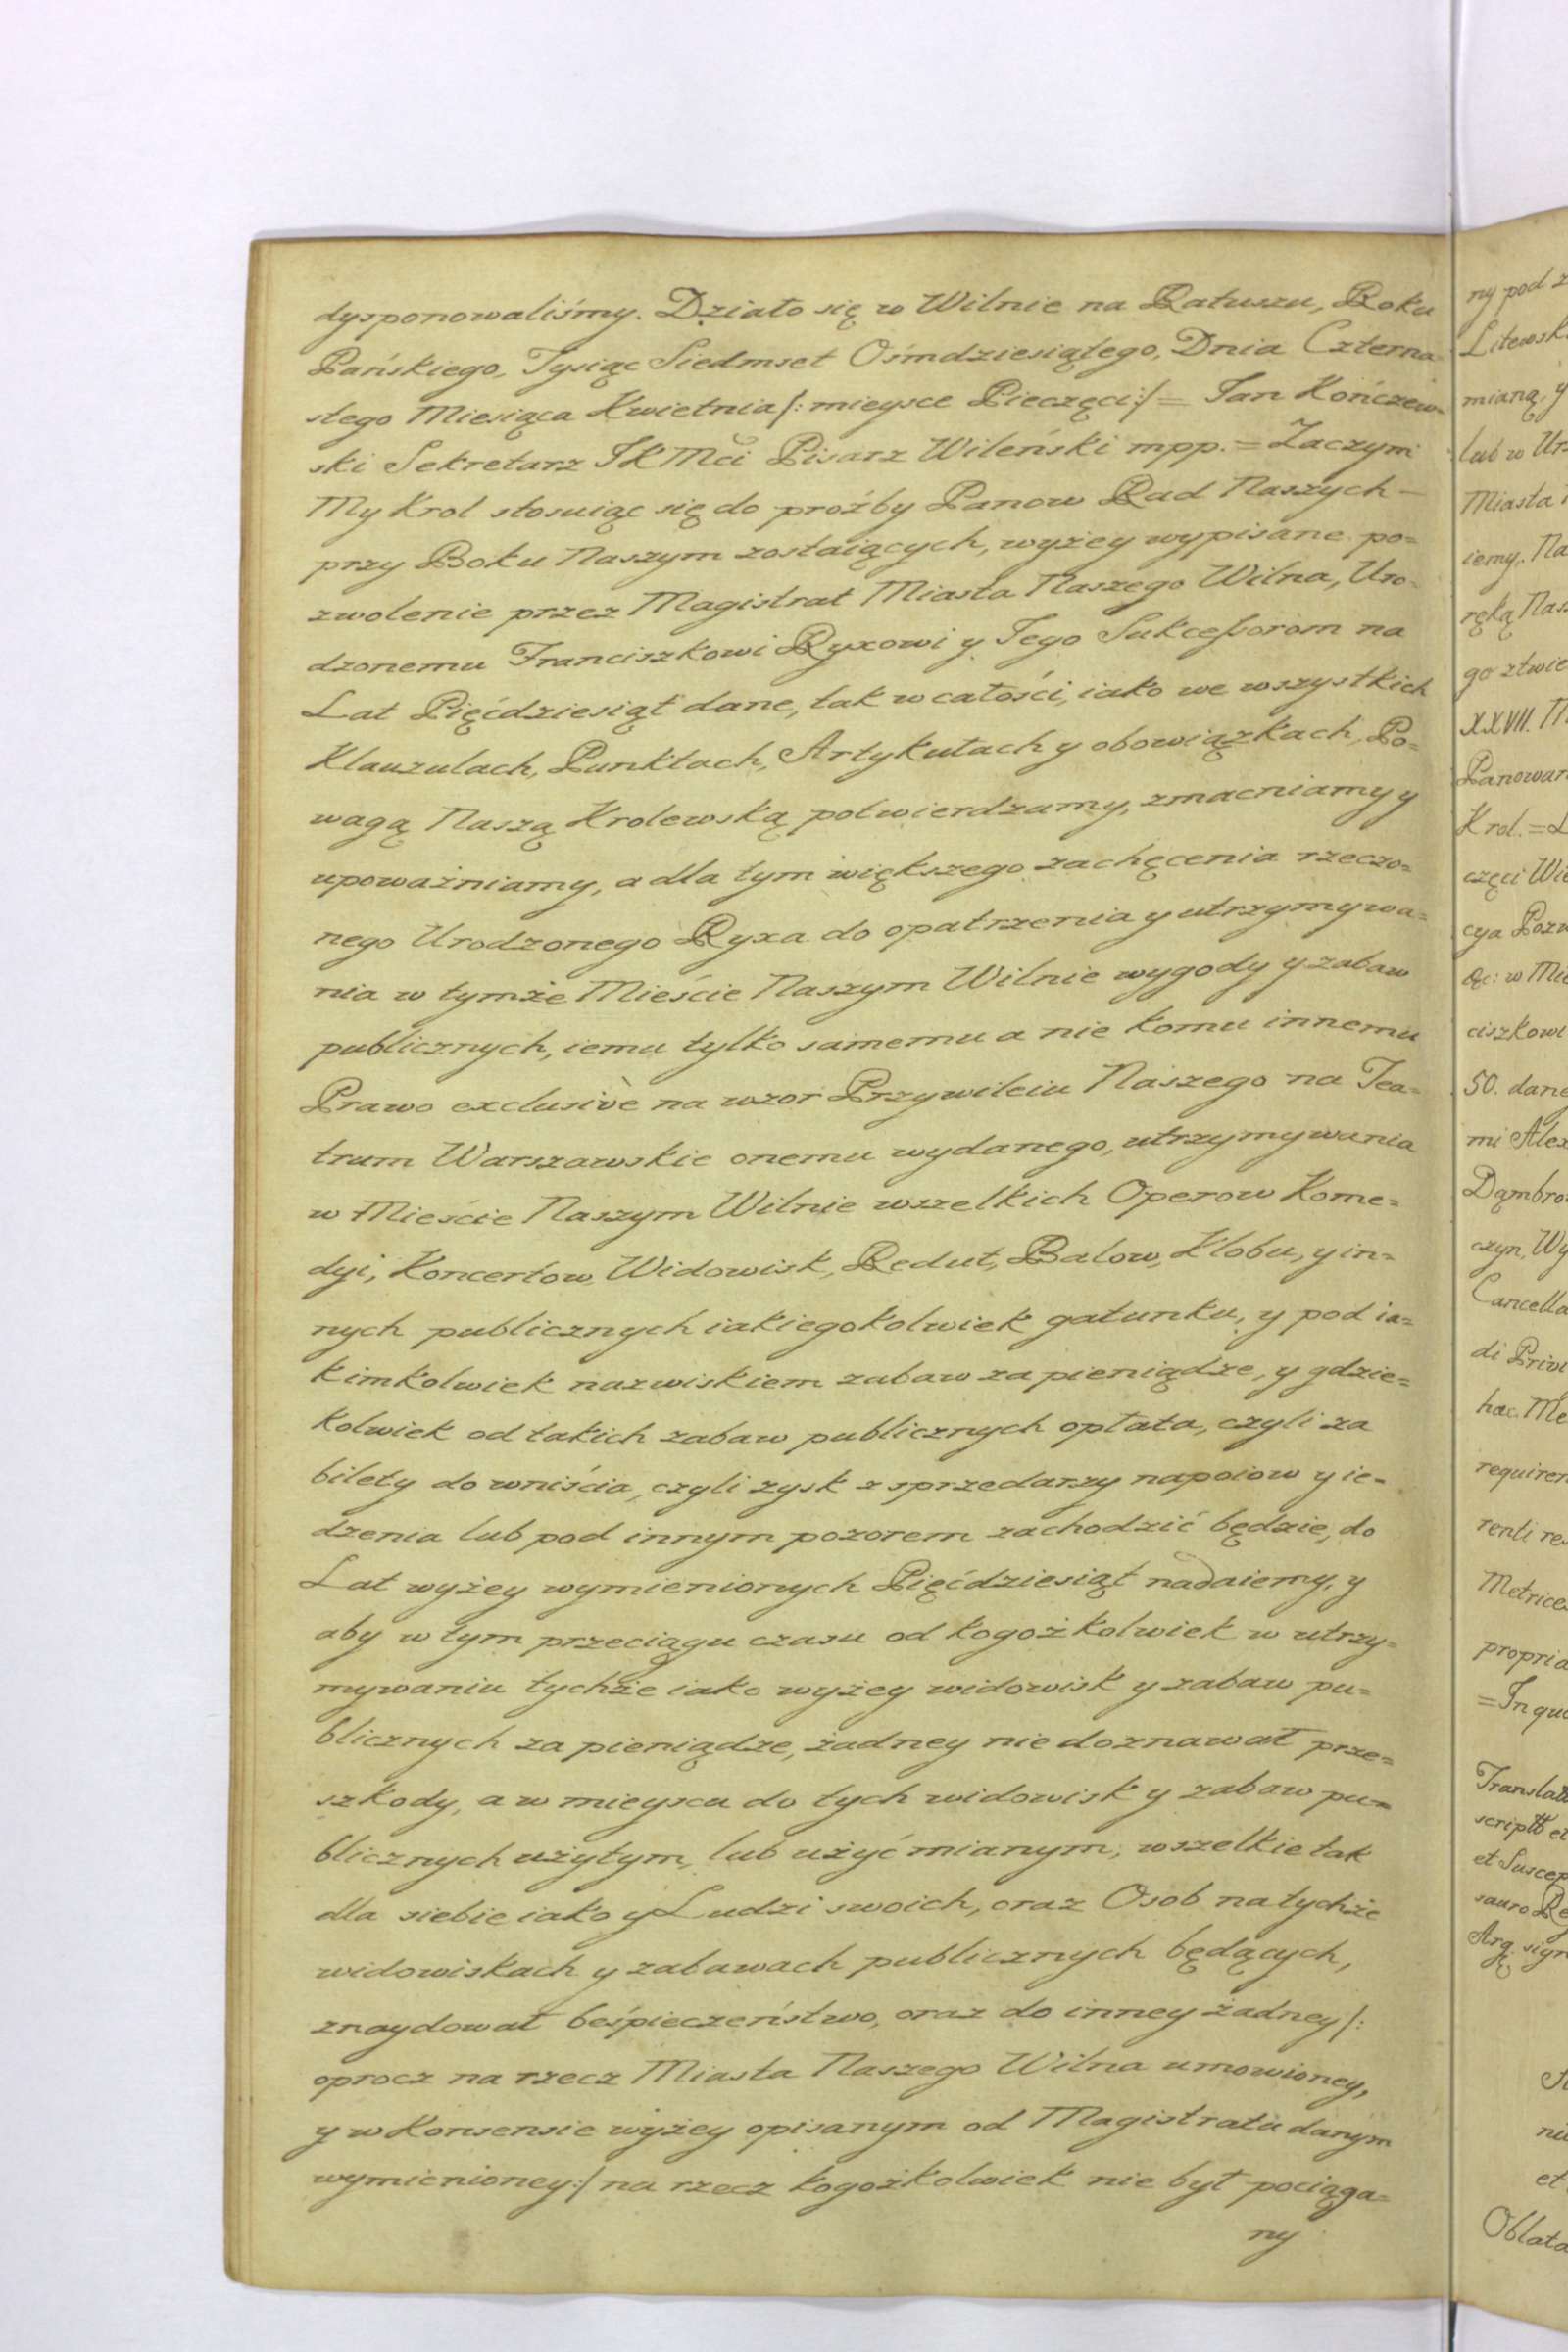 dysponowaliśmy. Działo się w Wilnie na Ratuszu, Roku
Pańskiego, Tysiąc Siedmset Ośmdziesiątego, Dnia Czterna-
stego Miesiąca Kwietnia /: mieysce Pieczęci :/ = Jan Kończew-
ski Sekretarz JKMci Pisarz Wileński mpp. = Zaczym
My Krol stosuiąc się do proźby Panow Rad Naszych -
przy Boku Naszym zostaiących, wyżey wypisane po=
zwolenie przez Magistrat Miasta Naszego Wilna, Uro-
dzonemu Franciszkowi Ryxowi y Jego Sukceßorom na
Lat Pięćdziesiąt dane, tak w całości, iako we wszystkich
Klauzulach, Punktach, Artykułach y obowiązkach, Po=
wagą Naszą Krolewską potwierdzamy, zmacniamy y
upoważniamy, a dla tym większego zachęcenia rzeczo=
nego Urodzonego Ryxa do opatrzenia y utrzymywa=
nia w tymże Mieście Naszym Wilnie wygody y zabaw
publicznych, iemu tylko samemu a nie komu innemu
Prawo exclusivè na wzor Przywileiu Naszego na Tea-
trum Warszawskie onemu wydanego, utrzymywania
w Mieście Naszym Wilnie wszelkich Operow Kome=
dyi, Koncertow, Widowisk, Redut, Balow, Klobu, y in=
nych publicznych iakiegokolwiek gatunku, y pod ia=
kimkolwiek nazwiskiem zabaw za pieniądze, y gdzie=
kolwiek od takich zabaw publicznych opłata, czyli za
bilety do wniścia, czyli zysk z sprzedarzy napoiow y ie=
dzenia lub pod innym pozorem zachodzić będzie, do
Lat wyżey wymienionych Pięćdziesiąt nadaiemy, y
aby w tym przeciągu czasu od kogożkolwiek w utrzy=
mywaniu tychże iako wyżey widowisk y zabaw pu=
blicznych za pieniądze, żadney nie doznawał prze=
szkody, a w mieysca do tych widowisk y zabaw pu=
blicznych użytym, lub użyć mianym, wszelkie tak
dla siebie iako y Ludzi swoich, oraz Osob na tychże
widowiskach y zabawach publicznych będących,
znaydował beśpieczeństwo, oraz do inney żadney /:
oprocz na rzecz Miasta Naszego Wilna umowioney,
y w Konsensie wyżey opisanym od Magistratu danym
wymienioney :/ na rzecz kogożkolwiek nie był pociąga=
ny
ny pod
Litewsk
mianą, y
lub w
Miasta
iemy. Na
ręką Nas
go ztwie
XXVII.
Panowan
Krol. =
częci
cya Pozw
&c: w Mie
ciszkowi
50. dane
mi Alex
Dąmbro
czyn, Wy
Cancella
di Privi
hac. Me
requiren
renti re
Metrices
propria
= In quo
Translat
script et
et Suscep
sauro Re
Arg. sign
nu
et
Oblata